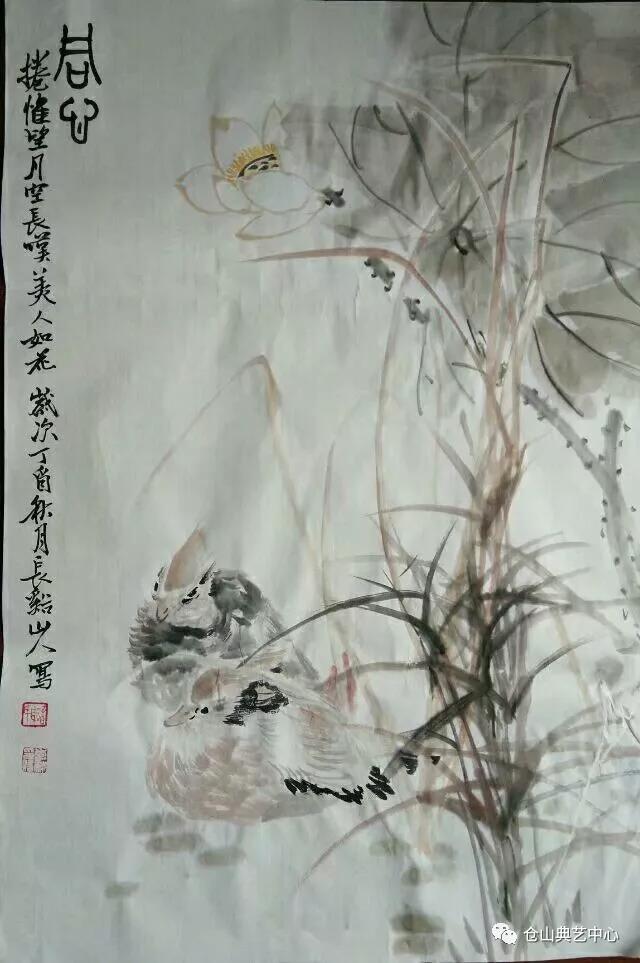 君心
捲帷望月空長嘆美人如花 歲次丁酉秋月長谿山人寫
仓山典艺中心